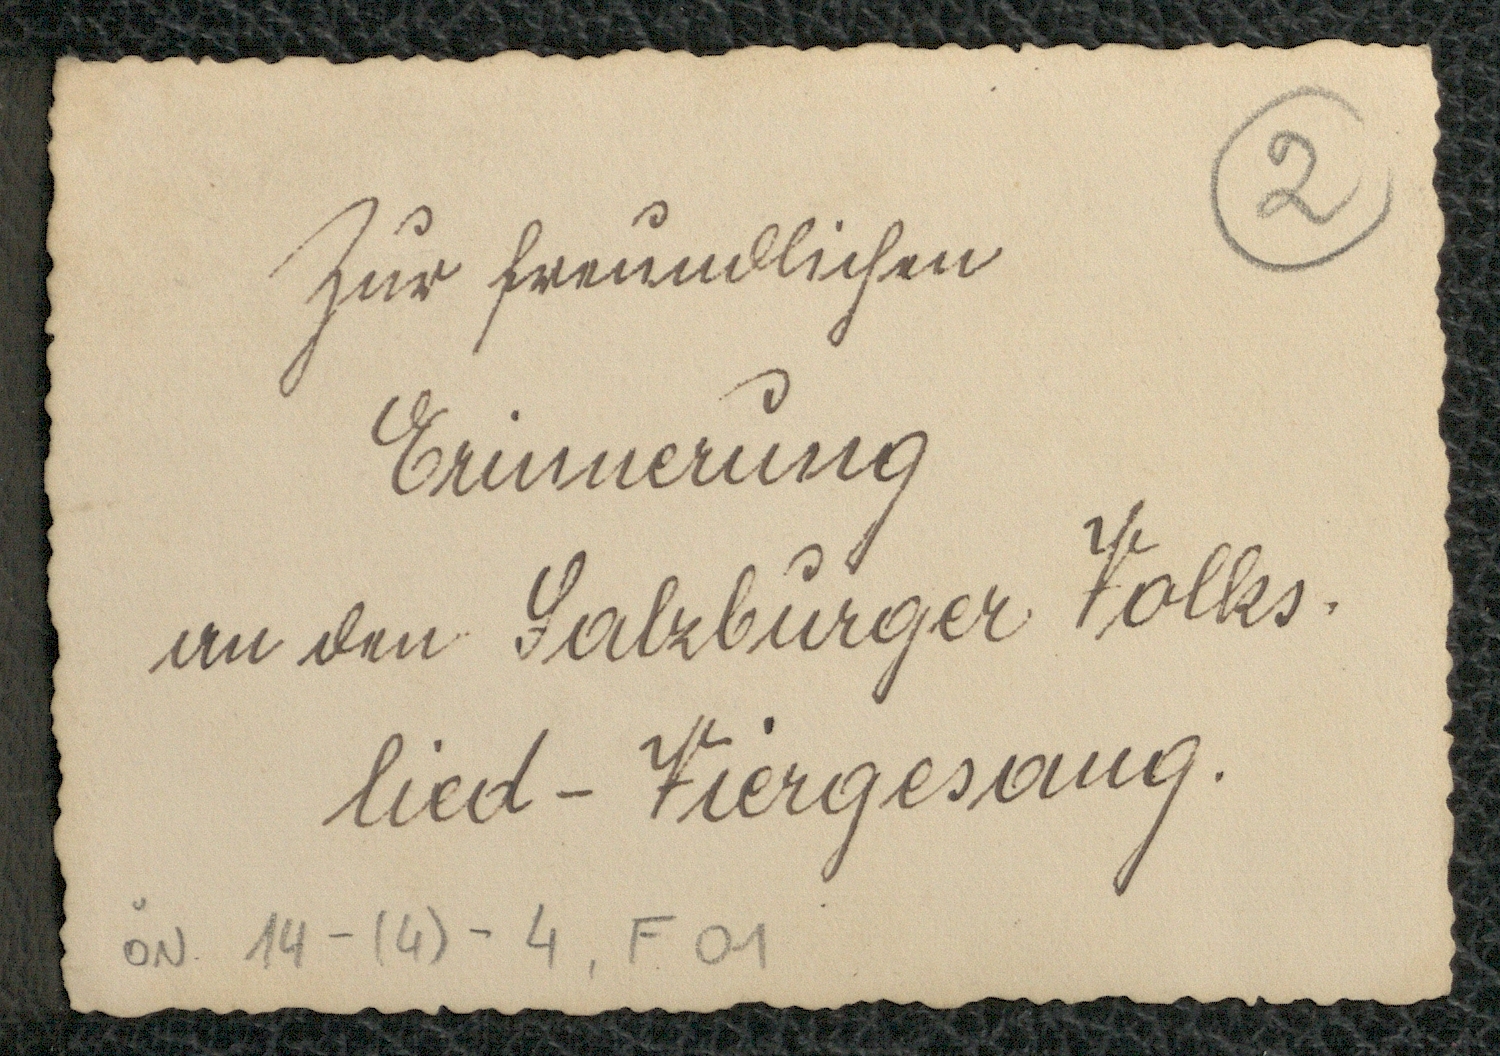 2
Zur freundlichen
Erinnerung
an den Salzburger Volks-
lied-Viergesang.
ÖN 14-(4)-4, F 01